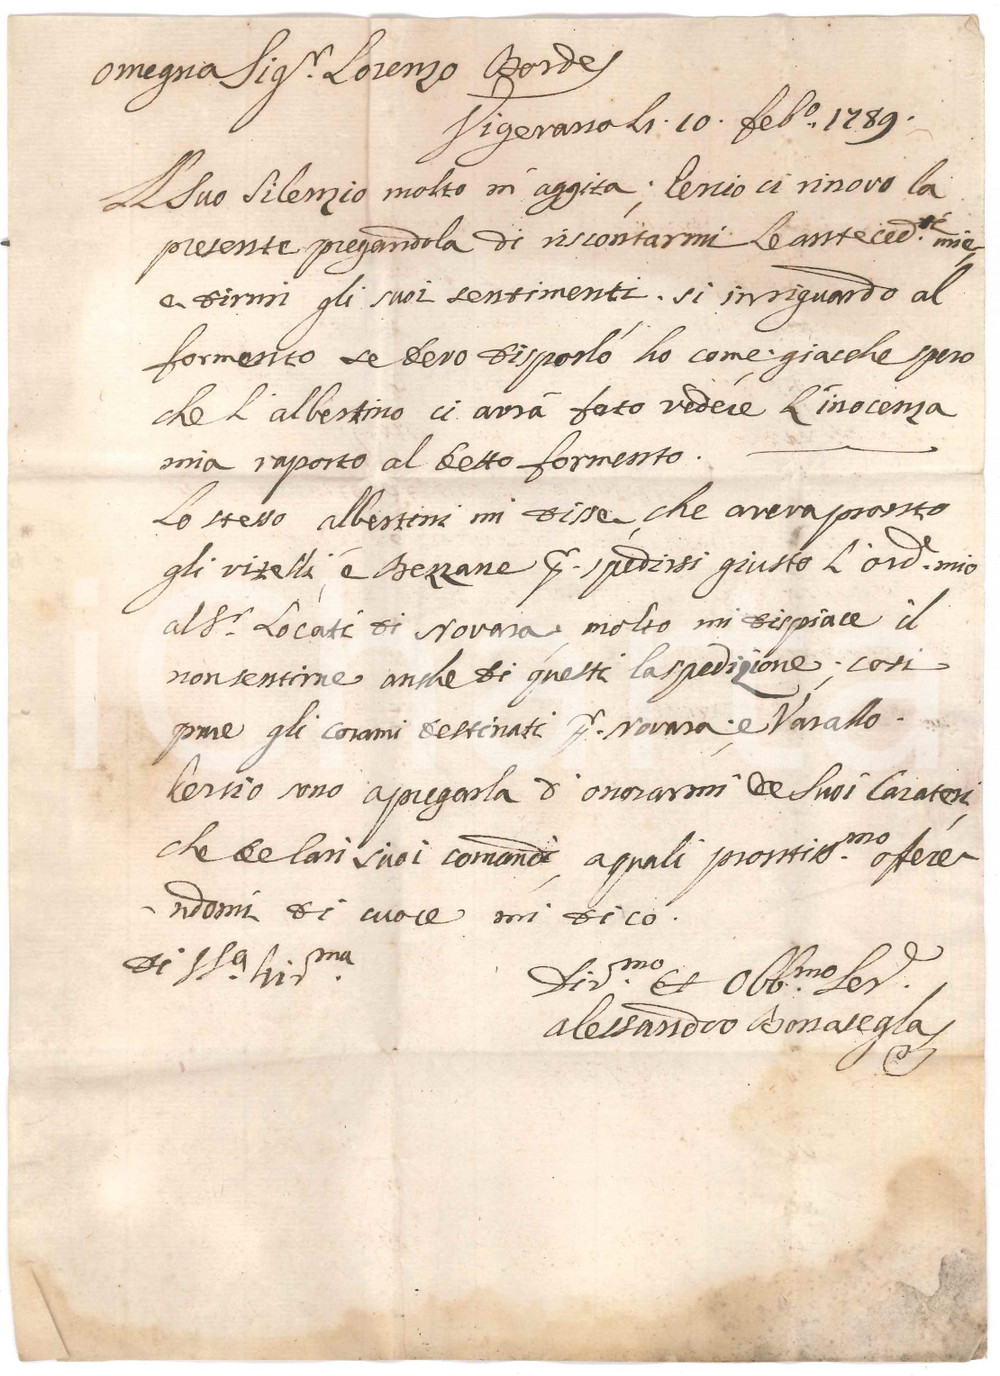 omegna Sig.r Lorenzo Bordes
Vigevano li 10. feb.o 1789.
Il Suo Silenzio molto m' aggita; Percio ci rinovo la
presente pregandola di riscontarmi le anteced.ti mie,
e dirmi gli suoi sentimenti. si inriguardo al
formento se devo disporló ho come; giacche spero
che l' albertino ci avrà fato vedére l'inocenza
mia raporto al detto formento.
Lo stesso albertini mi disse, che aveva pronto
gli vitelli, é Bezzane p.r spedirsi giusto l' ord.e mio
al S.r Locati di Novara, molto mi dispiace il
non sentirne anche di questi la spedizione; cosi
pure gli corami destinati p.r Novara, e Varallo.
Percio sono a pregarla d' onorarmi de Suoi Carateri,
che de Cari suoi comandi, a quali prontiss.mo ofere-
-ndomi di cuore mi dico.
di VS.a Ill.ma
Div.mo et Obb.mo Ser.e
alessandro Bonasegla